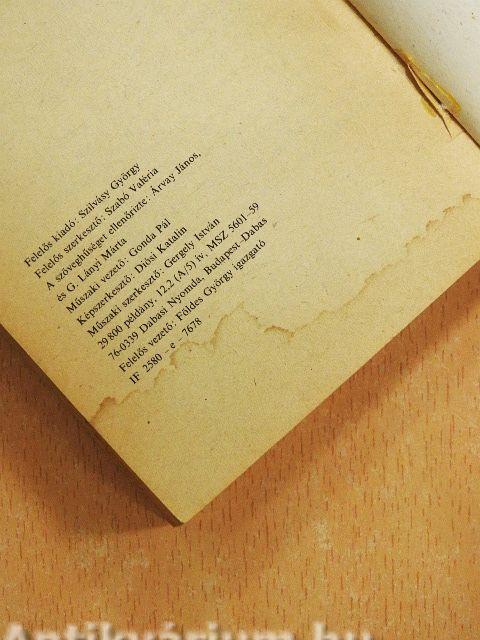 Felelős kiadó: Szilvásy György
Felelős szerkesztő: Szabó Valéria
A szöveghűséget ellenőrizte: Árvay János,
és G. Lányi Márta
Műszaki vezető: Gonda Pál
Képszerkesztő: Diósi Katalin
Műszaki szerkesztő: Gergely István
29 800 példány, 12,2 (A/5) ív, MSZ 5601–59
76-0339 Dabasi Nyomda, Budapest–Dabas
Felelős vezető: Földes György igazgató
IF 2580 – e – 7678
Antikvárium.hu